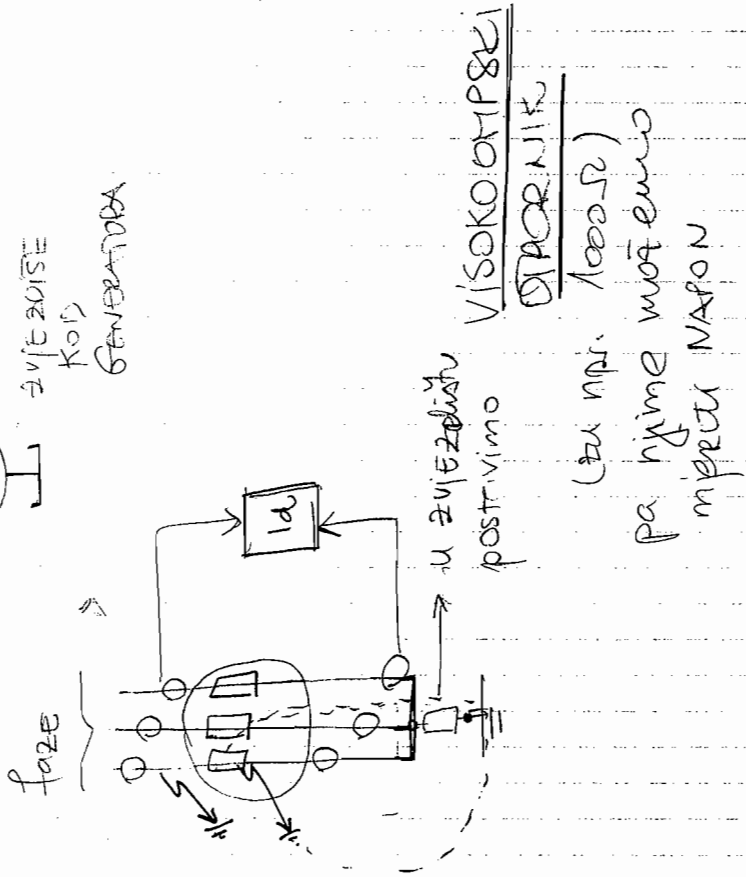 ZVJEZDIŠTE
KOD
GENERATORA
faze
Id
u zvjezdištu
postavimo
VISOKOOMPSKI
OTPORNIK
(tu npr. 1000Ω)
pa njime možemo
mjeriti NAPON